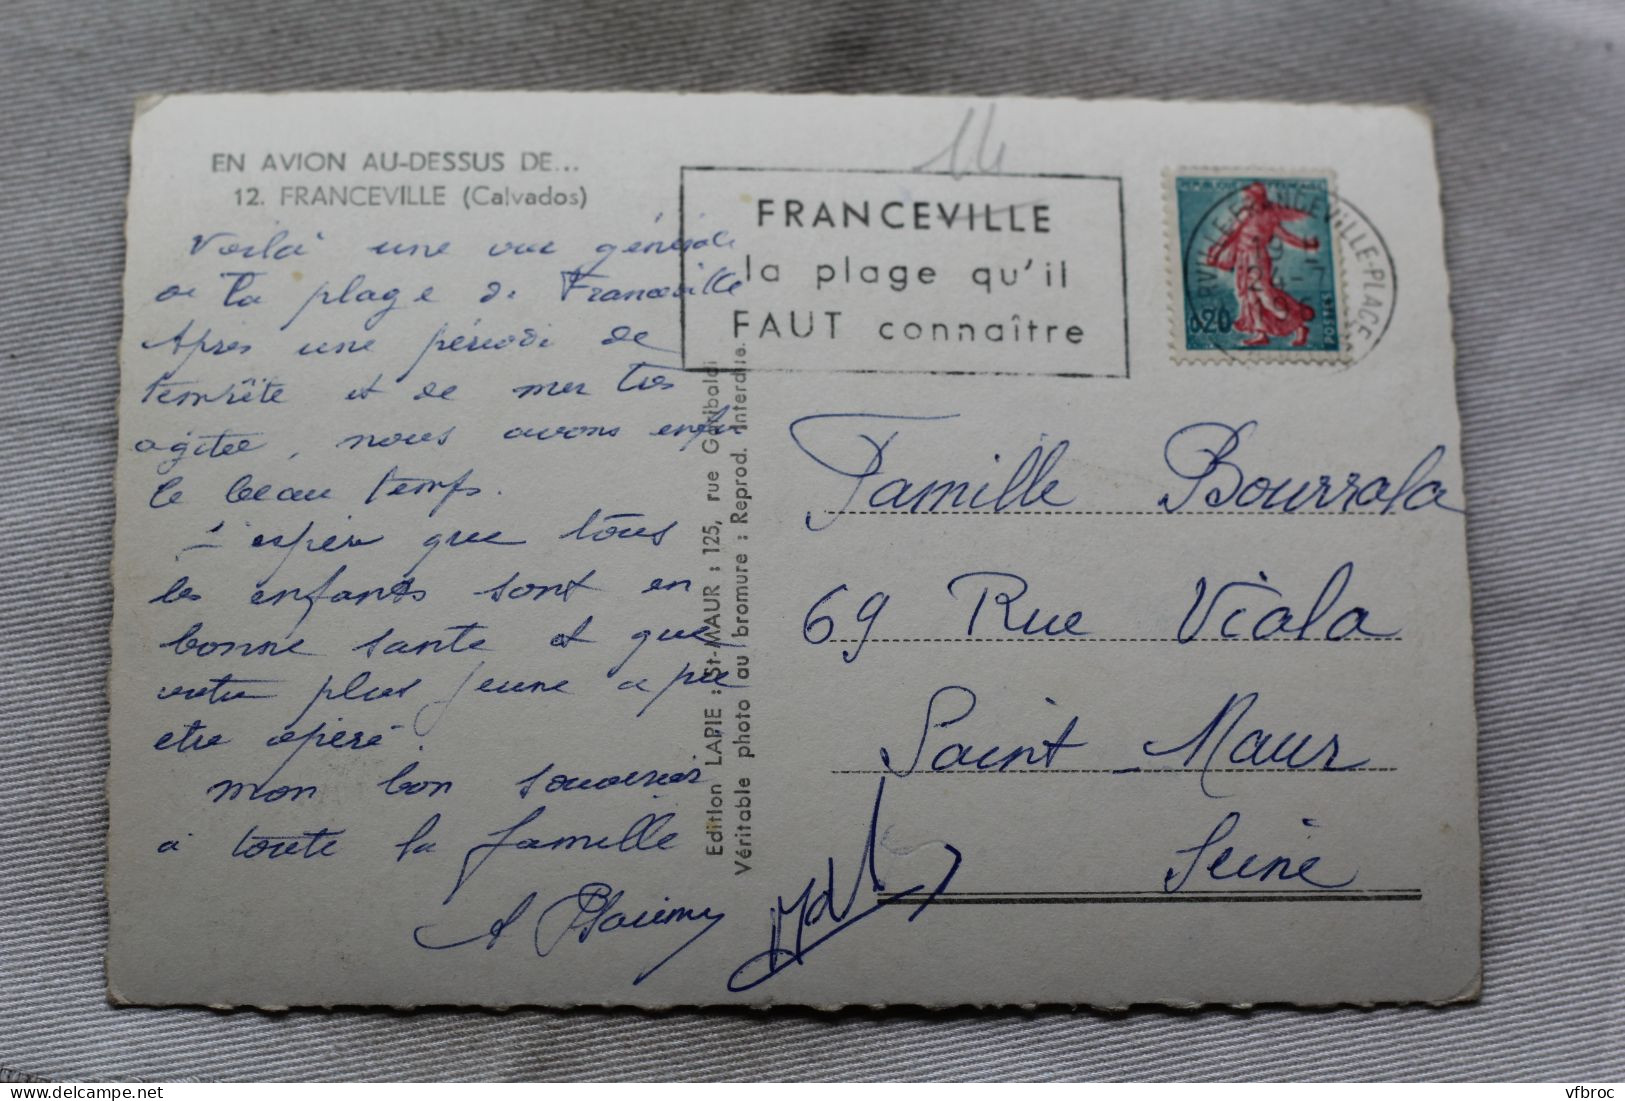 EN AVION AU-DESSUS DE...
12. FRANCEVILLE (Calvados)
Voilà une vue générale
de la plage de Franceville
Après une période de
tempête et de mer très
agitée, nous avons enfin
le beau temps.
J'espère que tous
les enfants sont en
bonne santé et que
votre plus jeune a pu
être opéré.
Mon bon souvenir
à toute la famille
14
FRANCEVILLE
la plage qu'il
FAUT connaître
REPUBLIQUE FRANÇAISE
0,20
POSTES
MERVILLE-FRANCEVILLE-PLAGE
24-7
196
Edition LAPIE : St-MAUR : 125, rue Garibaldi
Véritable photo au bromure : Reprod. Interdite.
Famille Bourrala
69 Rue Viala
Saint-Maur
Seine
vfbroc